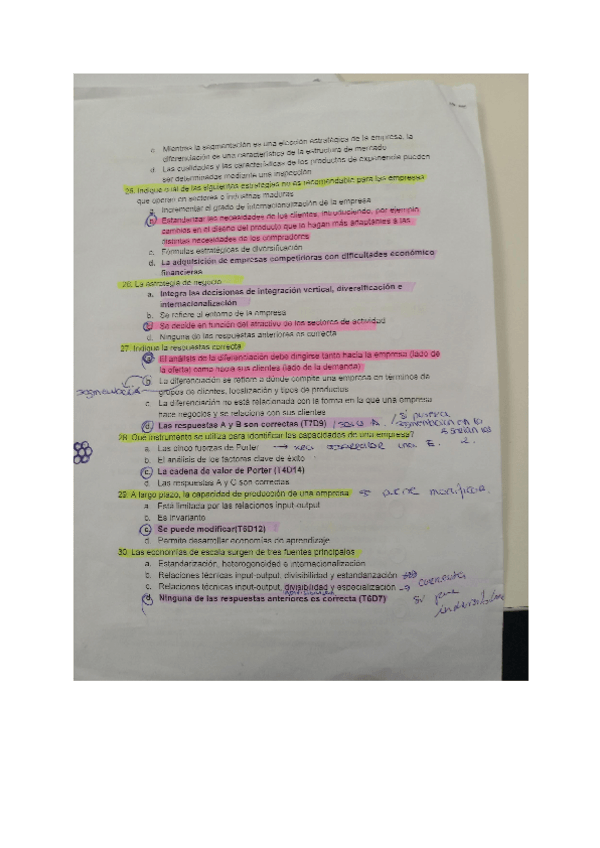 c. Mientras la segmentación es una elección estratégica de la empresa, la
diferenciación es una característica de la estructura de mercado
d. Las cualidades y las características de los productos de experiencia pueden
ser determinadas mediante una inspección
25. Indique cuál de las siguientes estrategias no es recomendable para las empresas
que operan en sectores o industrias maduras
a. Incrementar el grado de internacionalización de la empresa
b. Estandarizar las necesidades de los clientes, introduciendo, por ejemplo
cambios en el diseño del producto que lo hagan más adaptables a las
distintas necesidades de los compradores
c. Fórmulas estratégicas de diversificación
d. La adquisición de empresas competidoras con dificultades económico
financieras
26. La estrategia de negocio
a. Integra las decisiones de integración vertical, diversificación e
internacionalización
b. Se refiere al entorno de la empresa
c. Se decide en función del atractivo de los sectores de actividad
d. Ninguna de las respuestas anteriores es correcta
27. Indique la respuesta correcta
a. El análisis de la diferenciación debe dirigirse tanto hacia la empresa (lado de
la oferta) como hacia sus clientes (lado de la demanda)
b. La diferenciación se refiere a dónde compite una empresa en términos de
segmentación grupos de clientes, localización y tipos de productos
c. La diferenciación no está relacionada con la forma en la que una empresa
hace negocios y se relaciona con sus clientes
d. Las respuestas A y B son correctas (T7D9) / solo A. / Si pusiera
segmentación en la
28. Que instrumento se utiliza para identificar las capacidades de una empresa?
a. Las cinco fuerzas de Porter
b. El análisis de los factores clave de éxito
c. La cadena de valor de Porter (T4D14)
d. Las respuestas A y C son correctas
29. A largo plazo, la capacidad de producción de una empresa
a. Está limitada por las relaciones input-output
b. Es invariante
c. Se puede modificar(T6D12)
d. Permite desarrollar economías de aprendizaje
30. Las economías de escala surgen de tres fuentes principales
a. Estandarización, heterogeneidad e internacionalización
b. Relaciones técnicas input-output, divisibilidad y estandarización
c. Relaciones técnicas input-output, divisibilidad y especialización → correcta
d. Ninguna de las respuestas anteriores es correcta (T6D7)